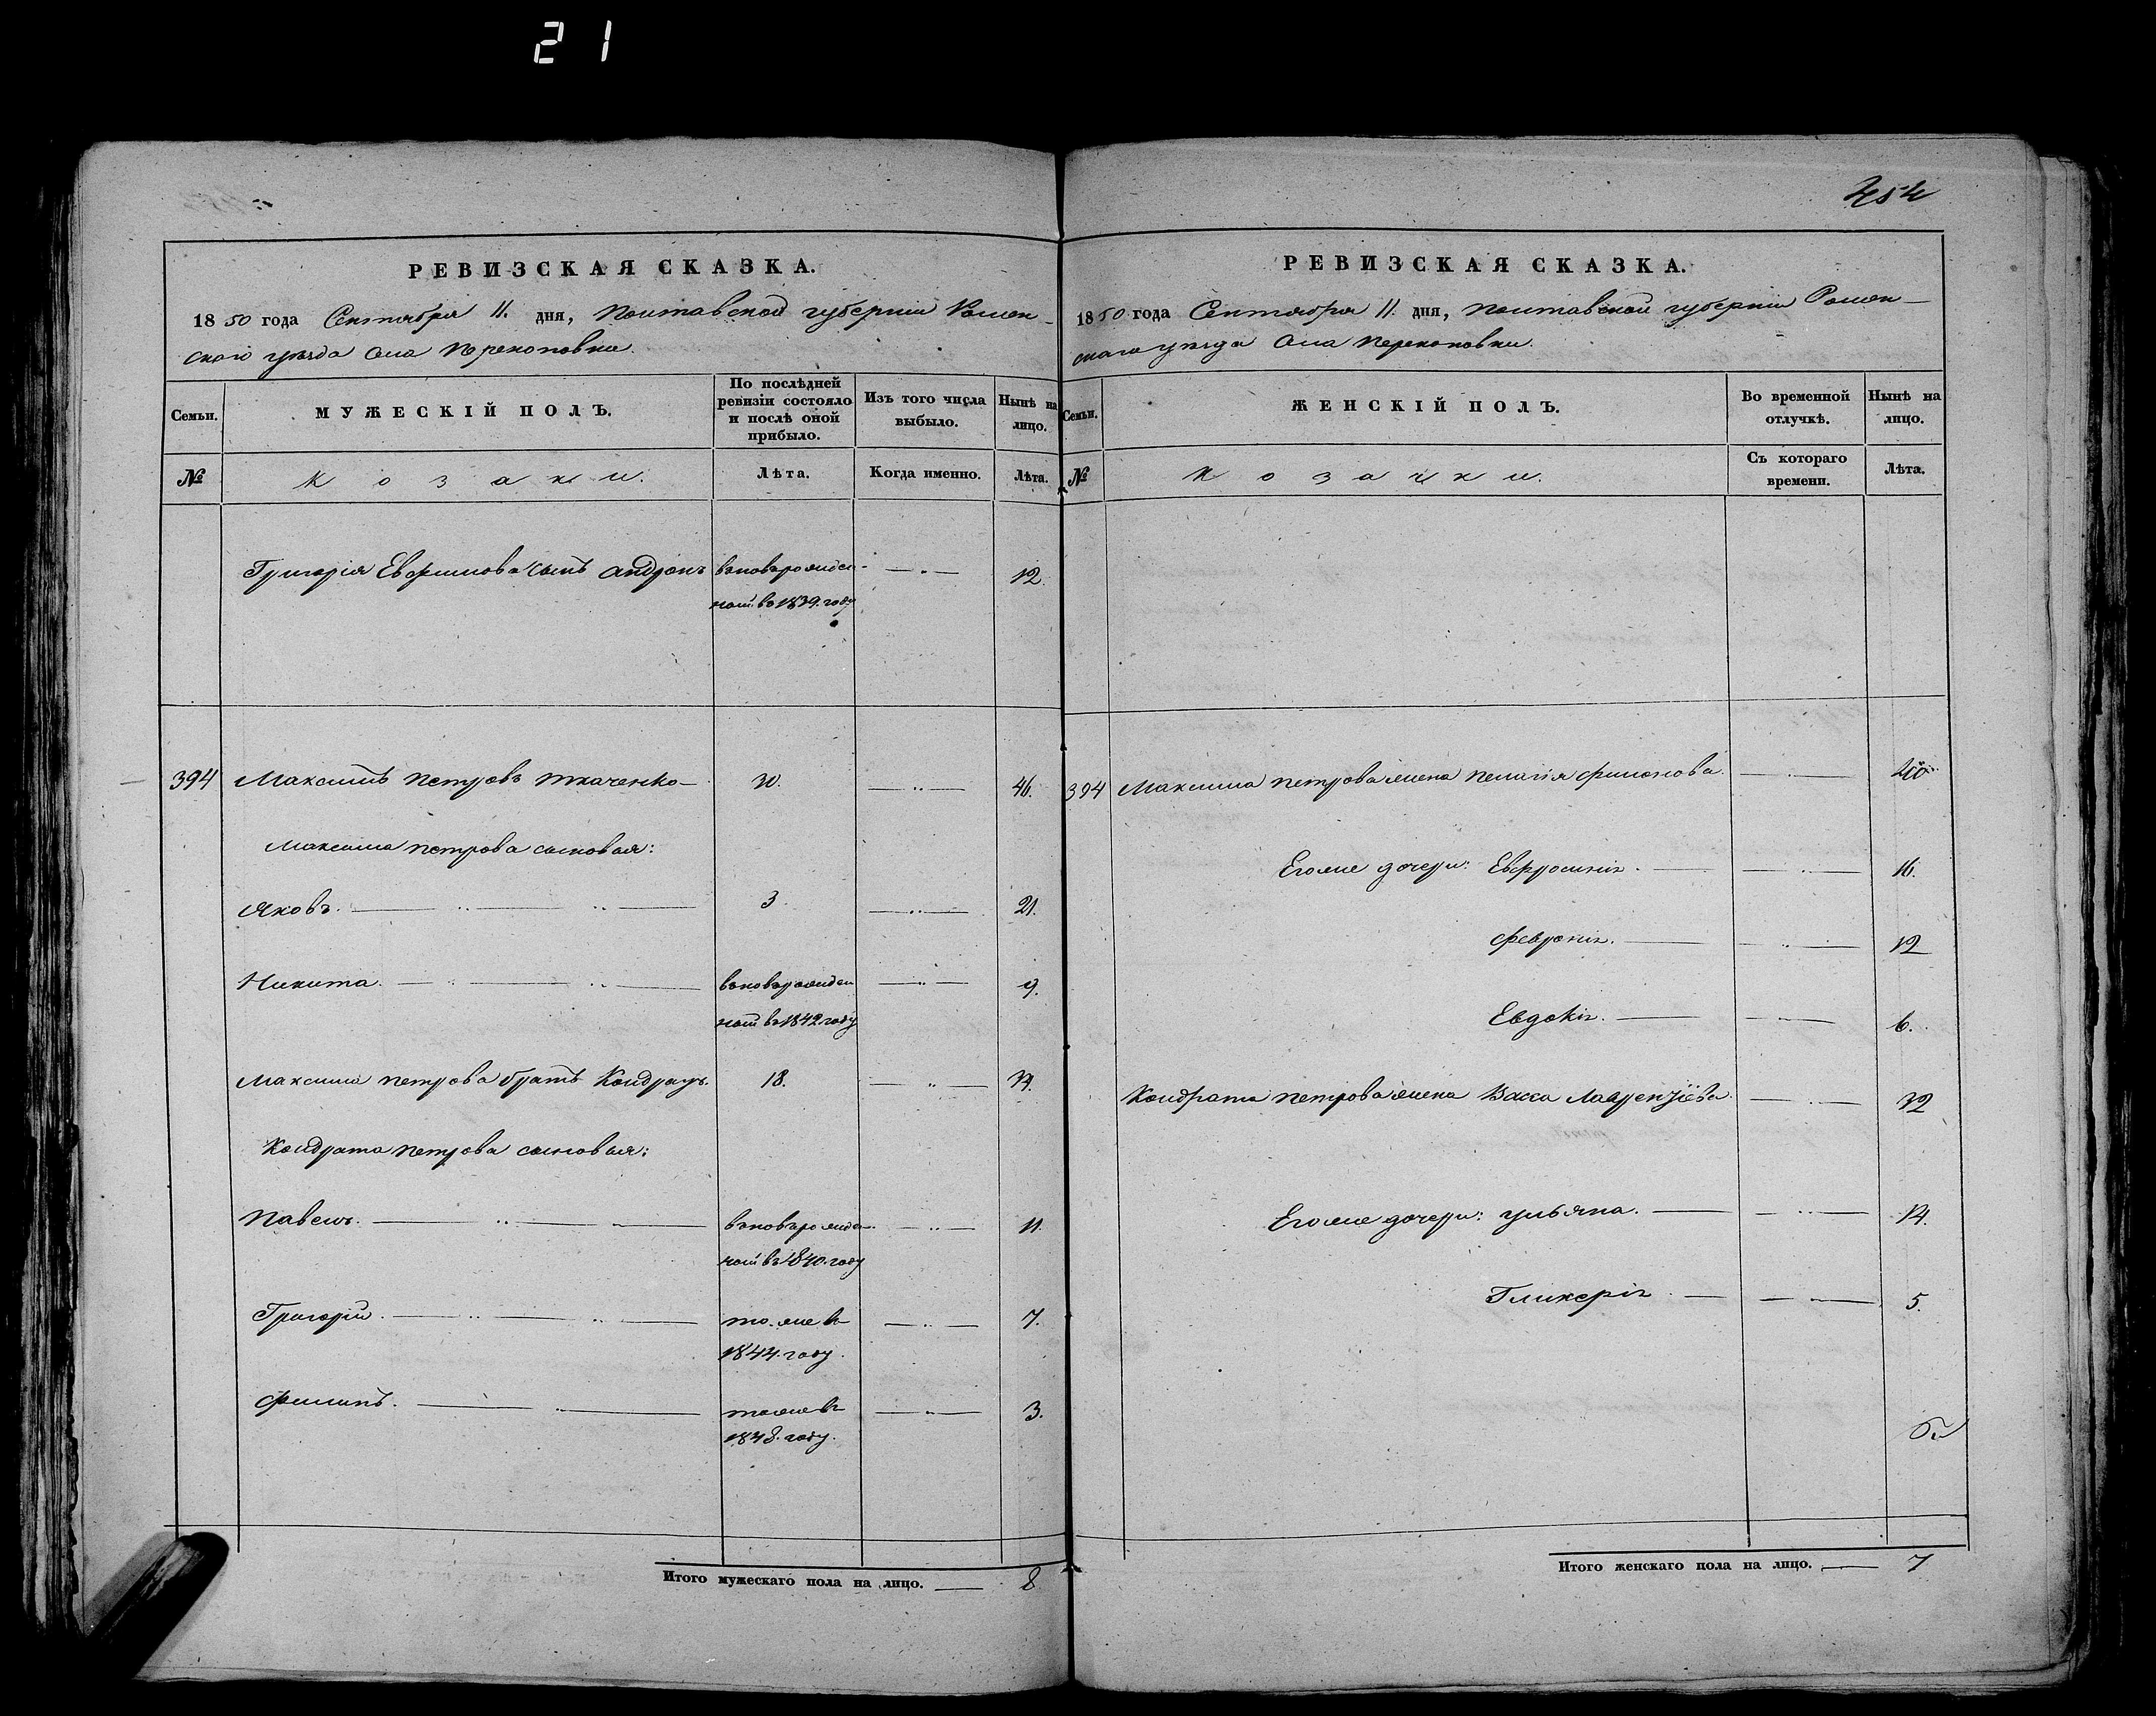 21
454
РЕВИЗСКАЯ СКАЗКА.
1850 года Сентября 11. дня, Полтавской губерніи Ромен-
скаго уѣзда села Перекоповки.
Семьи. МУЖЕСКІЙ ПОЛЪ. По послѣдней ревизіи состояло и послѣ оной прибыло. Изъ того числа выбыло. Нынѣ на лицо.
№ Козаки. Лѣта. Когда именно. Лѣта.
Григорія Евфимова сынъ Андронъ 12.
въ 1839. году
394 Максимъ Петровъ Ткаченко 30. 46.
Максима Петрова сыновья:
Яковъ. 3. 21.
Никита. 9.
въ 1842 году
Максима Петрова братъ Кондратъ. 18. 34.
Кондрата Петрова сыновья:
Павелъ. 11.
въ 1840. году
Григорій. тоже въ 7.
1844. году.
Филипъ. тоже въ 3.
1848. году.
Итого мужескаго пола на лицо. 8
РЕВИЗСКАЯ СКАЗКА.
1850 года Сентября 11. дня, Полтавской губерніи Ромен-
скаго уѣзда села Перекоповки.
Семьи. ЖЕНСКІЙ ПОЛЪ. Во временной отлучкѣ. Нынѣ на лицо.
№ Козачки. Съ котораго времени. Лѣта.
394 Максима Петрова жена Пелагія Филонова. 40.
Его же дочери: Евфросинія. 16.
Февронія. 12
Евдокія. 6.
Кондрата Петрова жена Васса Лаврентіева. 32
Его же дочери: Ульяна. 14.
Гликерія. 5.
Итого женскаго пола на лицо. 7